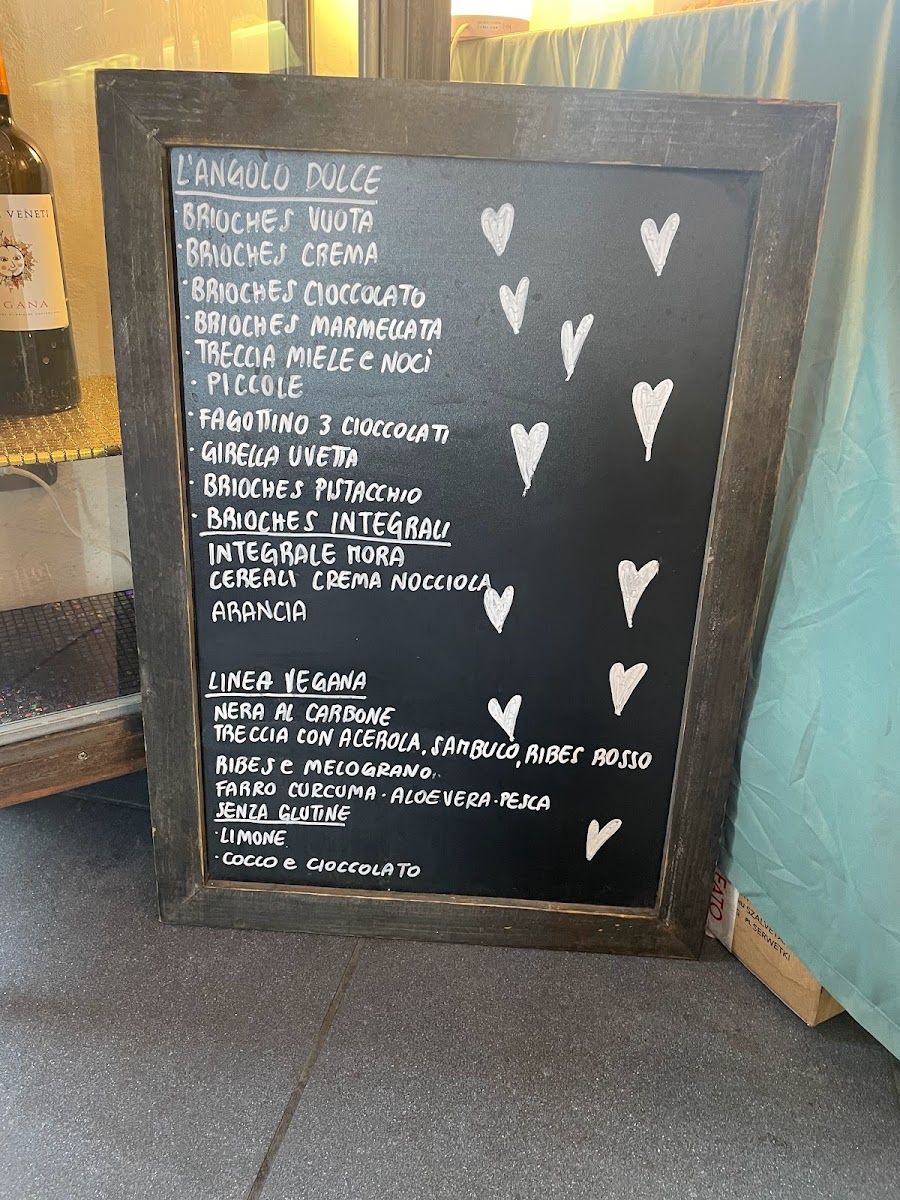 L'ANGOLO DOLCE
· BRIOCHES VUOTA
· BRIOCHES CREMA
· BRIOCHES CIOCCOLATO
· BRIOCHES MARMELLATA
· TRECCIA MIELE e NOCI
· PICCOLE
· FAGOTTINO 3 CIOCCOLATI
· GIRELLA UVETTA
· BRIOCHES PISTACCHIO
· BRIOCHES INTEGRALI
INTEGRALE MORA
CEREALI CREMA NOCCIOLA
ARANCIA
LINEA VEGANA
NERA AL CARBONE
TRECCIA CON ACEROLA, SAMBUCO, RIBES ROSSO
RIBES e MELOGRANO
FARRO CURCUMA · ALOEVERA · PESCA
SENZA GLUTINE
· LIMONE
· COCCO e CIOCCOLATO
VENETI
GANA
FATO
SZALVETA
PL SERWETKI